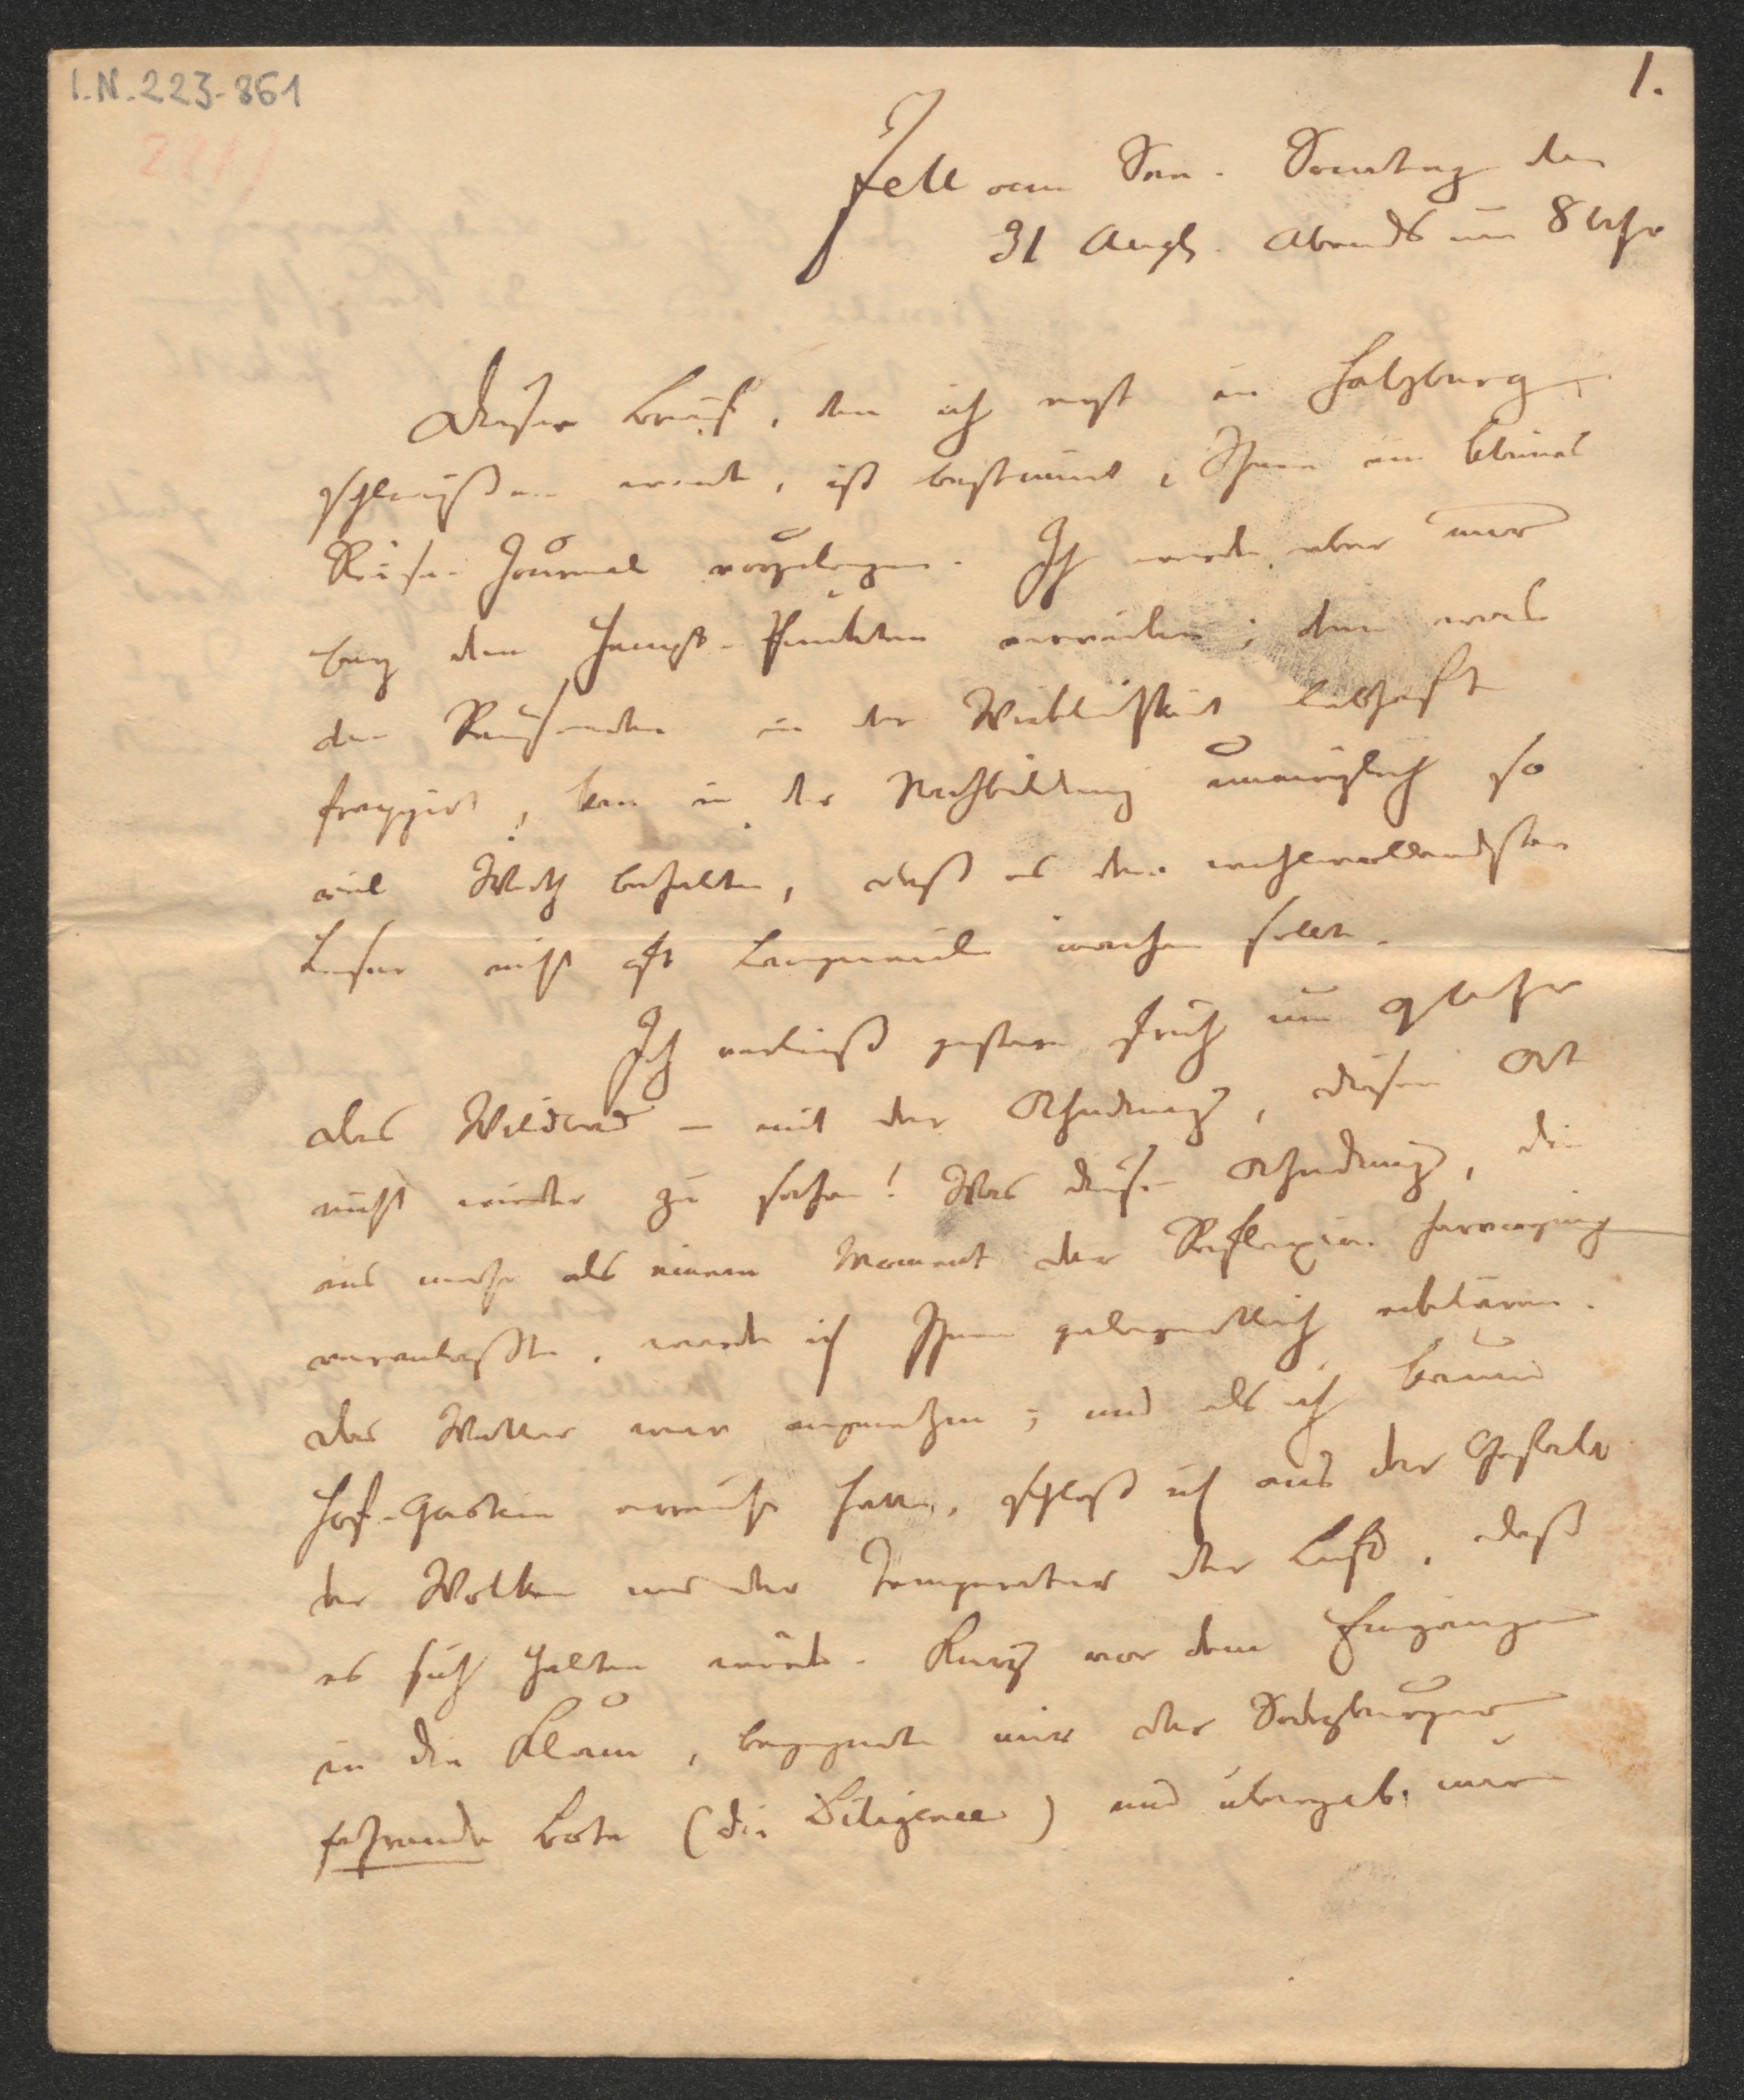 I.N. 223.861
1.
Zell am See. Sonntag den
31 Augst. Abends um 8 Uhr
Dieser Brief, den ich erst in Salzburg
schließen werde, ist bestimmt, Ihnen ein kleines
Reise-Journal vorzulegen. Ich werde aber nur
bey den Haupt-Punkten verweilen; denn was
den Reisenden in der Wirklichkeit lebhaft
frappirt, kan in der Nachbildung unmöglich so
viel Werth behalten, daß es dem wohlwollendsten
Leser nicht oft Langeweile machen sollte.
Ich verließ gestern früh um 9 Uhr
das Wildbad – mit der Ahndung, diesen Ort
nicht wieder zu sehen! Was diese Ahndung, die
aus mehr als einem Moment der Reflexion hervorging
veranlaßte, werde ich Ihnen gelegentlich erklären.
Das Wetter war angenehm; und als ich kaum
Hof-Gastein erreicht hatte, schloß ich aus der Gestalt
der Wolken und der Temperatur der Luft, daß
es sich halten würde. Kurz vor dem Eingange
in die Klam, begegnete mir der Salzburger
fahrende Bote (die Diligence) und übergab mir